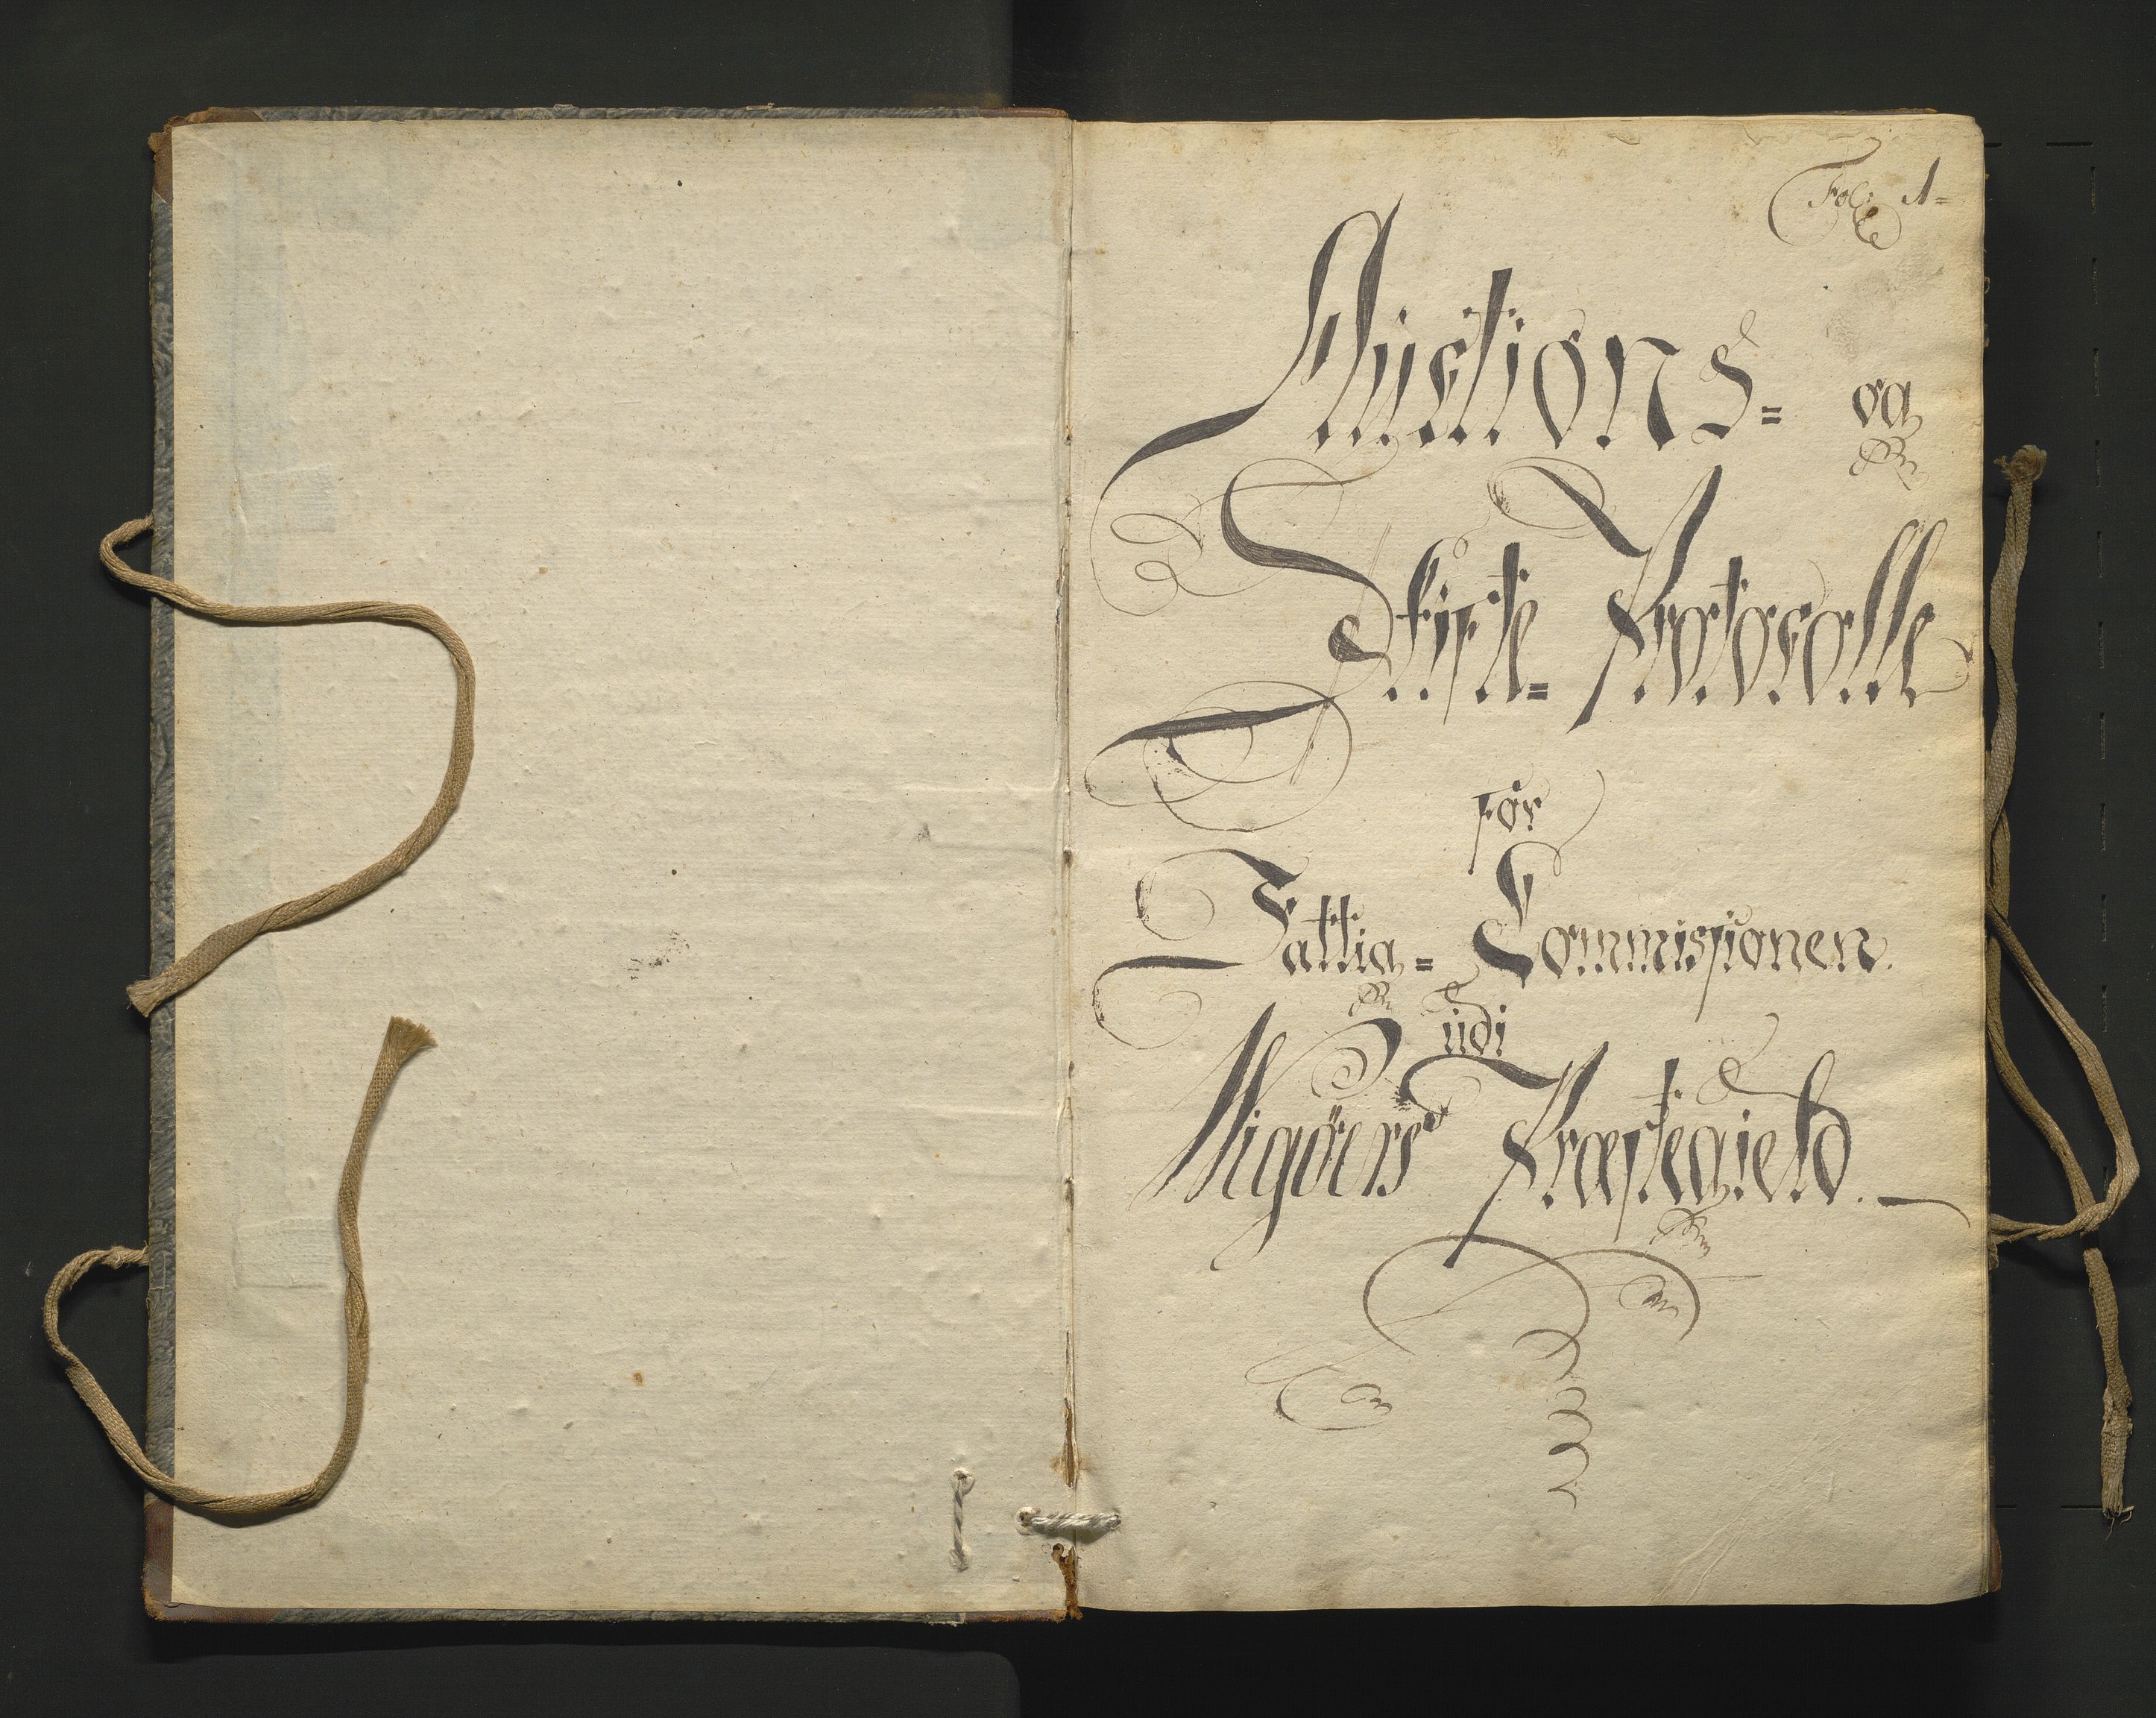 Folio 1=
Auctions= og
Skifte= Protocolle
for
Fattig= Commissionen
udi
Wigöers Præstegield.